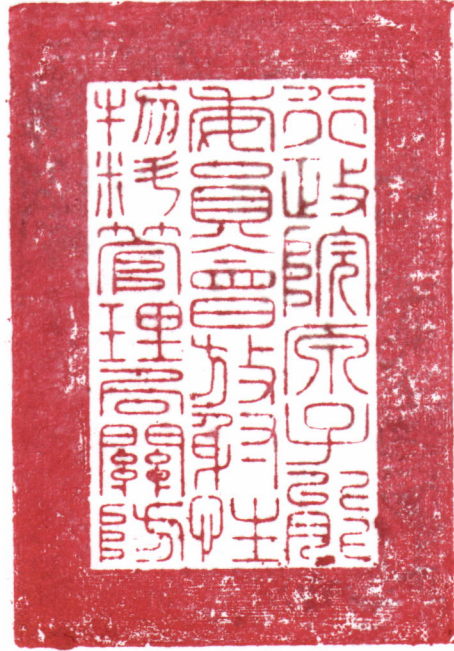 行政院原子能
委員會放射性
物料管理局關防